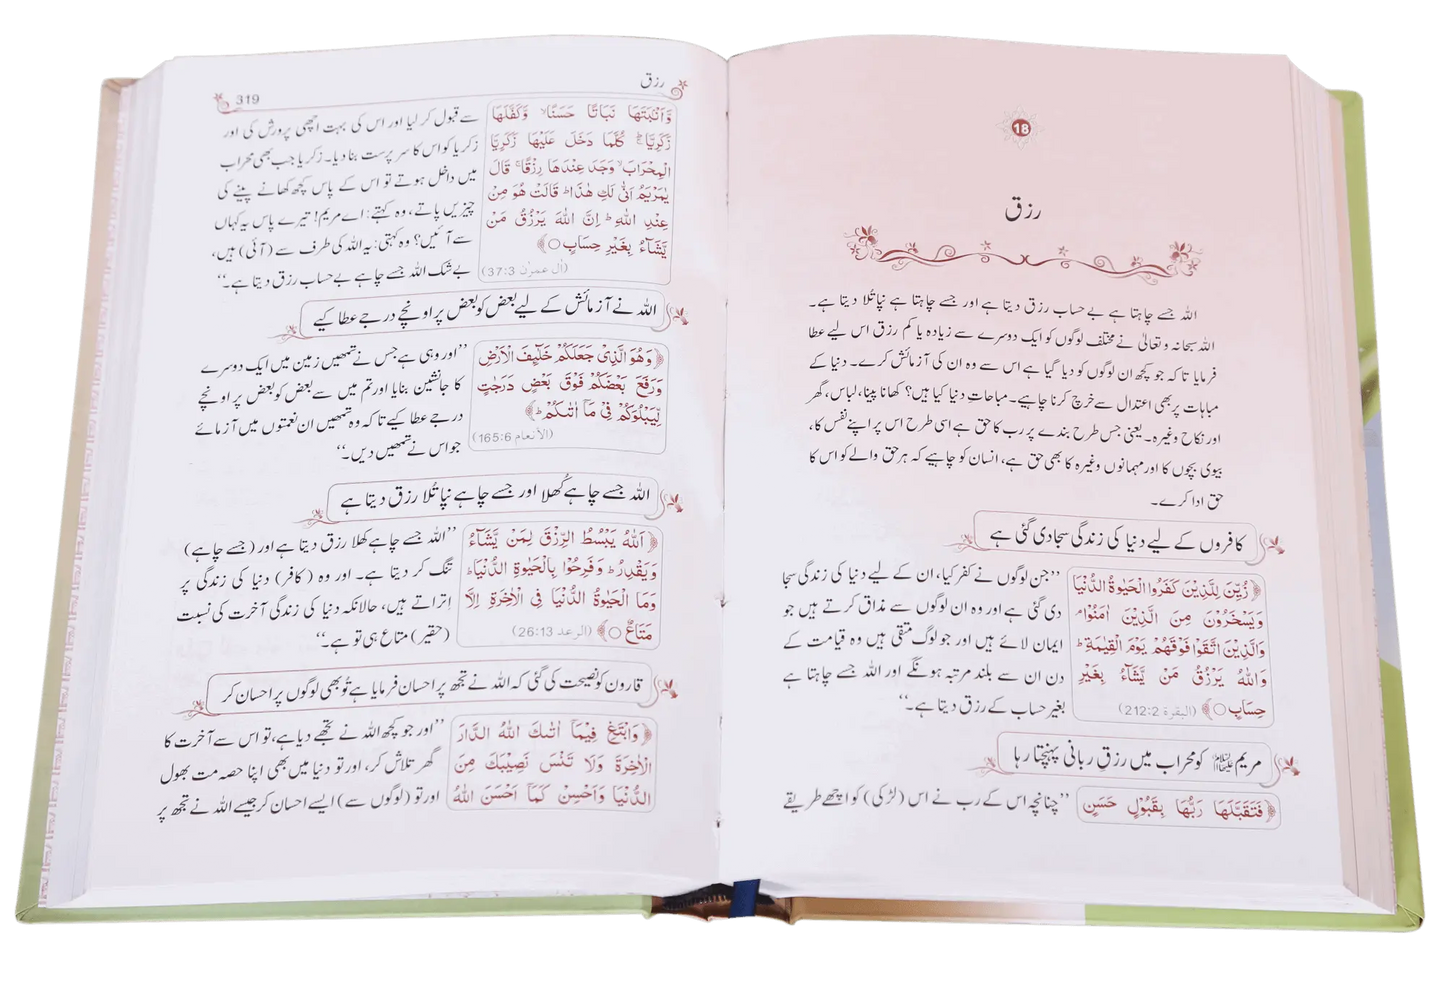 18
رزق
اللہ جسے چاہتا ہے بے حساب رزق دیتا ہے اور جسے چاہتا ہے نپا تُلا دیتا ہے۔
اللہ سبحانہ وتعالیٰ نے مختلف لوگوں کو ایک دوسرے سے زیادہ یا کم رزق اس لیے عطا
فرمایا تاکہ جو کچھ ان لوگوں کو دیا گیا ہے اس سے وہ ان کی آزمائش کرے۔ دنیا کے
مباہات پر بھی اعتدال سے خرچ کرنا چاہیے۔ مباحاتِ دنیا کیا ہیں؟ کھانا پینا، لباس، گھر
اور نکاح وغیرہ۔ یعنی جس طرح بندے پر رب کا حق ہے اسی طرح اس پر اپنے نفس کا،
بیوی بچوں کا اور مہمانوں وغیرہ کا بھی حق ہے، انسان کو چاہیے کہ ہر حق والے کو اس کا
حق ادا کرے۔
کافروں کے لیے دنیا کی زندگی سجا دی گئی ہے
﴿زُيِّنَ لِلَّذِيْنَ كَفَرُوا الْحَيٰوةُ الدُّنْيَا
وَيَسْخَرُوْنَ مِنَ الَّذِيْنَ اٰمَنُوْا ۘ
وَالَّذِيْنَ اتَّقَوْا فَوْقَهُمْ يَوْمَ الْقِيٰمَةِ ؕ
وَاللّٰهُ يَرْزُقُ مَنْ يَّشَآءُ بِغَيْرِ
حِسَابٍ ○﴾ (البقرة 212:2)
”جن لوگوں نے کفر کیا، ان کے لیے دنیا کی زندگی سجا
دی گئی ہے اور وہ ان لوگوں سے مذاق کرتے ہیں جو
ایمان لائے ہیں اور جو لوگ متقی ہیں وہ قیامت کے
دن ان سے بلند مرتبہ ہونگے اور اللہ جسے چاہتا ہے
بغیر حساب کے رزق دیتا ہے۔“
مریم علیہا السلام کو محراب میں رزقِ ربانی پہنچتا رہا
﴿فَتَقَبَّلَهَا رَبُّهَا بِقَبُوْلٍ حَسَنٍ
”چنانچہ اس کے رب نے اس (لڑکی) کو اچھے طریقے
رزق
319
وَّاَنْۢبَتَهَا نَبَاتًا حَسَنًا ۙ وَّكَفَّلَهَا
زَكَرِيَّا ؕ كُلَّمَا دَخَلَ عَلَيْهَا زَكَرِيَّا
الْمِحْرَابَ ۙ وَجَدَ عِنْدَهَا رِزْقًا ۚ قَالَ
يٰمَرْيَمُ اَنّٰى لَكِ هٰذَا ؕ قَالَتْ هُوَ مِنْ
عِنْدِ اللّٰهِ ؕ اِنَّ اللّٰهَ يَرْزُقُ مَنْ
يَّشَآءُ بِغَيْرِ حِسَابٍ ○﴾
(اٰل عمرٰن 37:3)
سے قبول کر لیا اور اس کی بہت اچھی پرورش کی اور
زکریا کو اس کا سرپرست بنا دیا۔ زکریا جب بھی محراب
میں داخل ہوتے تو اس کے پاس کچھ کھانے پینے کی
چیزیں پاتے، وہ کہتے: اے مریم! تیرے پاس یہ کہاں
سے آئیں؟ وہ کہتی: یہ اللہ کی طرف سے (آئی) ہیں،
بے شک اللہ جسے چاہے بے حساب رزق دیتا ہے۔“
اللہ نے آزمائش کے لیے بعض کو بعض پر اونچے درجے عطا کیے
﴿وَهُوَ الَّذِيْ جَعَلَكُمْ خَلٰٓىِٕفَ الْاَرْضِ
وَرَفَعَ بَعْضَكُمْ فَوْقَ بَعْضٍ دَرَجٰتٍ
لِّيَبْلُوَكُمْ فِيْ مَآ اٰتٰىكُمْ ؕ﴾
(الأنعام 165:6)
”اور وہی ہے جس نے تمھیں زمین میں ایک دوسرے
کا جانشین بنایا اور تم میں سے بعض کو بعض پر اونچے
درجے عطا کیے تاکہ وہ تمھیں ان نعمتوں میں آزمائے
جو اس نے تمھیں دیں۔“
اللہ جسے چاہے کُھلا اور جسے چاہے نپا تُلا رزق دیتا ہے
﴿اَللّٰهُ يَبْسُطُ الرِّزْقَ لِمَنْ يَّشَآءُ
وَيَقْدِرُ ؕ وَفَرِحُوْا بِالْحَيٰوةِ الدُّنْيَا ؕ
وَمَا الْحَيٰوةُ الدُّنْيَا فِي الْاٰخِرَةِ اِلَّا
مَتَاعٌ ○﴾ (الرعد 26:13)
”اللہ جسے چاہے کھلا رزق دیتا ہے اور (جسے چاہے)
تنگ کر دیتا ہے۔ اور وہ (کافر) دنیا کی زندگی پر
اِتراتے ہیں، حالانکہ دنیا کی زندگی آخرت کی نسبت
(حقیر) متاع ہی تو ہے۔“
قارون کو نصیحت کی گئی کہ اللہ نے تجھ پر احسان فرمایا ہے تُو بھی لوگوں پر احسان کر
﴿وَابْتَغِ فِيْمَآ اٰتٰىكَ اللّٰهُ الدَّارَ
الْاٰخِرَةَ وَلَا تَنْسَ نَصِيْبَكَ مِنَ
الدُّنْيَا وَاَحْسِنْ كَمَآ اَحْسَنَ اللّٰهُ
”اور جو کچھ اللہ نے تجھے دیا ہے، تو اس سے آخرت کا
گھر تلاش کر، اور تو دنیا میں بھی اپنا حصہ مت بھول
اور تو (لوگوں سے) ایسے احسان کر جیسے اللہ نے تجھ پر